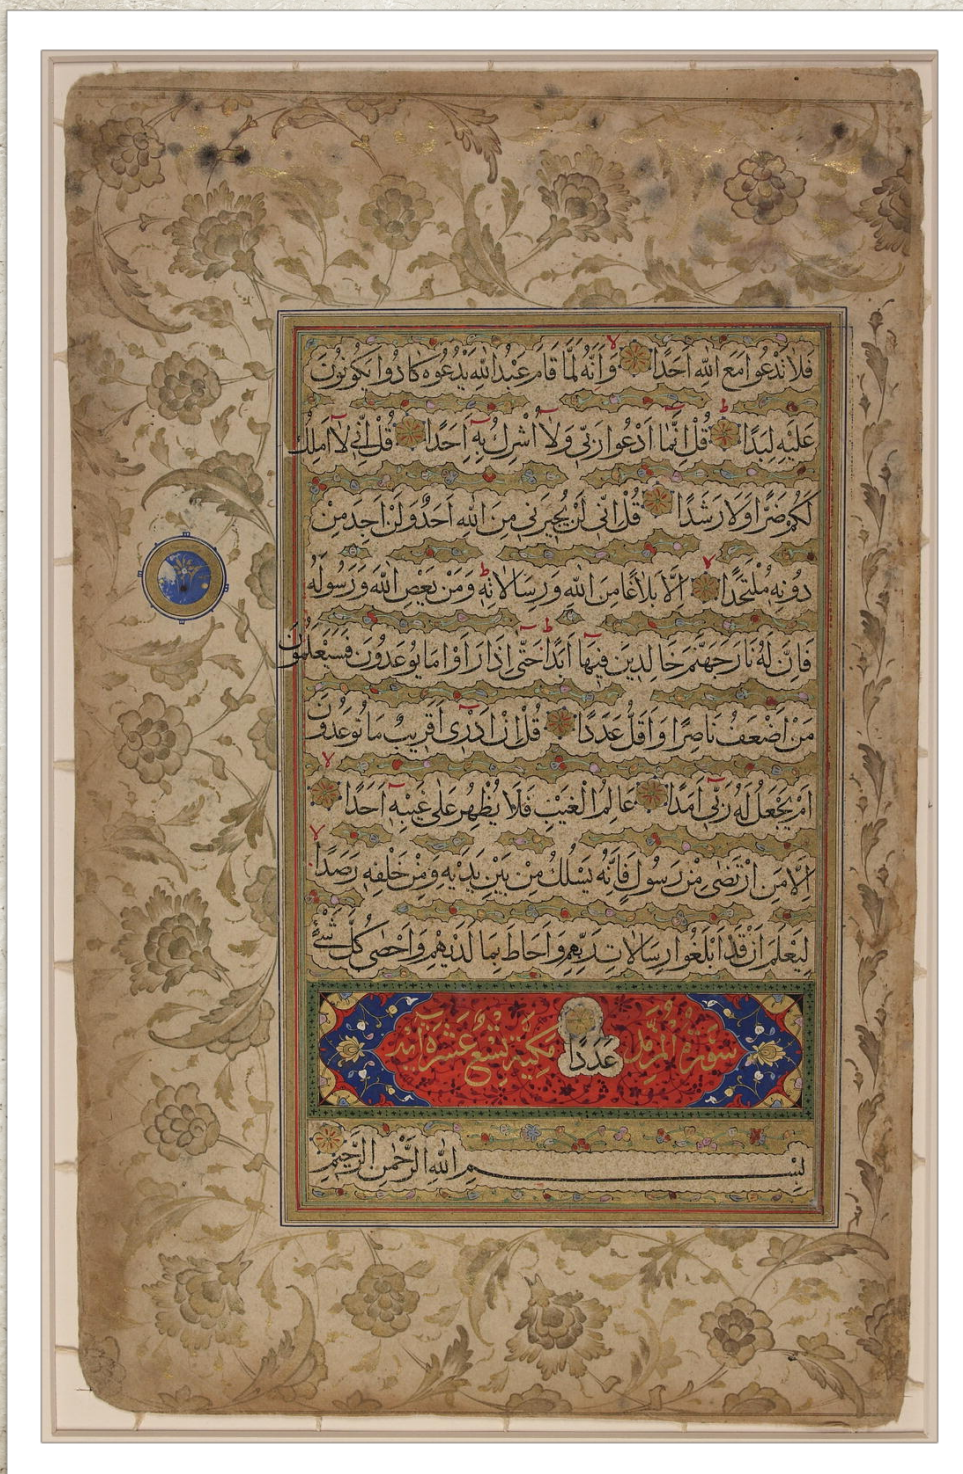 فَلَا تَدْعُوا مَعَ اللّٰهِ اَحَدًا وَاَنَّهُ لَمَّا قَامَ عَبْدُ اللّٰهِ يَدْعُوهُ كَادُوا يَكُونُونَ
عَلَيْهِ لِبَدًا قُلْ اِنَّمَا اَدْعُوا رَبّ۪ي وَلَا اُشْرِكُ بِهِ اَحَدًا قُلْ اِنّ۪ي لَا اَمْلِكُ
لَكُمْ ضَرًّا وَلَا رَشَدًا قُلْ اِنّ۪ي لَنْ يُج۪يرَن۪ي مِنَ اللّٰهِ اَحَدٌ وَلَنْ اَجِدَ مِنْ
دُونِهِ مُلْتَحَدًا اِلَّا بَلَاغًا مِنَ اللّٰهِ وَرِسَالَاتِهِ وَمَنْ يَعْصِ اللّٰهَ وَرَسُولَهُ
فَاِنَّ لَهُ نَارَ جَهَنَّمَ خَالِد۪ينَ ف۪يهَا اَبَدًا حَتّٰى اِذَا رَاَوْا مَا يُوعَدُونَ فَسَيَعْلَمُونَ
مَنْ اَضْعَفُ نَاصِرًا وَاَقَلُّ عَدَدًا قُلْ اِنْ اَدْر۪ى اَقَر۪يبٌ مَا تُوعَدُونَ
اَمْ يَجْعَلُ لَهُ رَبّ۪ي اَمَدًا عَالِمُ الْغَيْبِ فَلَا يُظْهِرُ عَلٰى غَيْبِهِ اَحَدًا
اِلَّا مَنِ ارْتَضٰى مِنْ رَسُولٍ فَاِنَّهُ يَسْلُكُ مِنْ بَيْنِ يَدَيْهِ وَمِنْ خَلْفِهِ رَصَدًا
لِيَعْلَمَ اَنْ قَدْ اَبْلَغُوا رِسَالَاتِ رَبِّهِمْ وَاَحَاطَ بِمَا لَدَيْهِمْ وَاَحْصٰى كُلَّ شَيْءٍ
سُورَةُ الْمُزَّمِّلِ عَدَدًا مَكِّيَّةٌ تِسْعَ عَشْرَةَ اٰيَة
بِسْمِ اللّٰهِ الرَّحْمٰنِ الرَّح۪يمِ